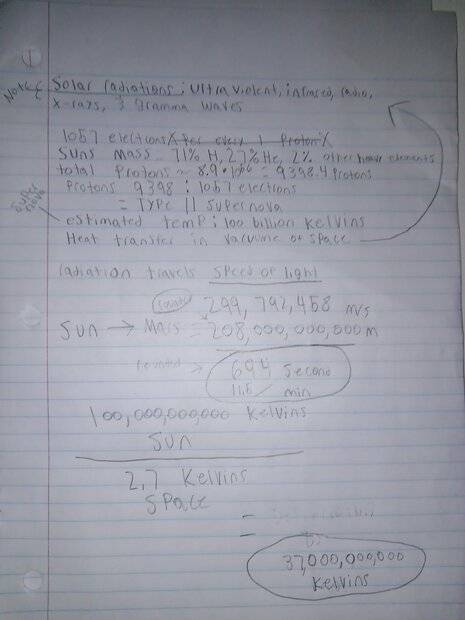 Notes
Solar radiations; ultraviolent, infrared, radio,
X-rays, & Gramma waves
1057 electrons X per every 1 Proton X
Suns Mass = 71% H, 27% He, 2% other heavy elements
total Protons = 8.9•10^56 = 9398.4 Protons
Protons 9398 : 1057 electrons
= TYPE II supernova
Super nova
estimated temp: 100 billion Kelvins
Heat transfer in vacuume of space
radiation travels speed of light
299,792,458 m/s
Sun → Mars = 208,000,000,000m
694 second
11.6 / min
100,000,000,000 Kelvins
Sun
2.7 Kelvins
Space
=
=
37,000,000,000
Kelvins